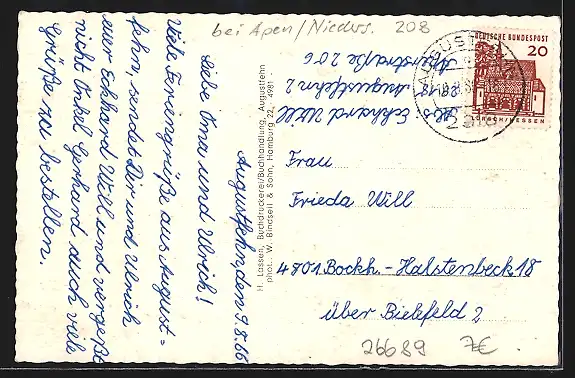 bei Apen/Nieders. 208
Augustfehn, den 9.8.66
Liebe Oma und Ulrich!
Viele Feriengrüße aus August-
fehn, sendet Dir und Ulrich
euer Eckhard Will und vergeßt
nicht Onkel Gerhard auch viele
Grüße zu bestellen.
H. Lassen, Buchdruckerei/Buchhandlung, Augustfehn
phot. W. Bindseil & Sohn, Hamburg 22, 4981
Abs.: Eckhard Will
2918 Augustfehn 2
206
DEUTSCHE BUNDESPOST
20
LORSCH/HESSEN
Frau
Frieda Will
4801 Bockh.-Halstenbeck 18
über Bielefeld 2
26689 7€